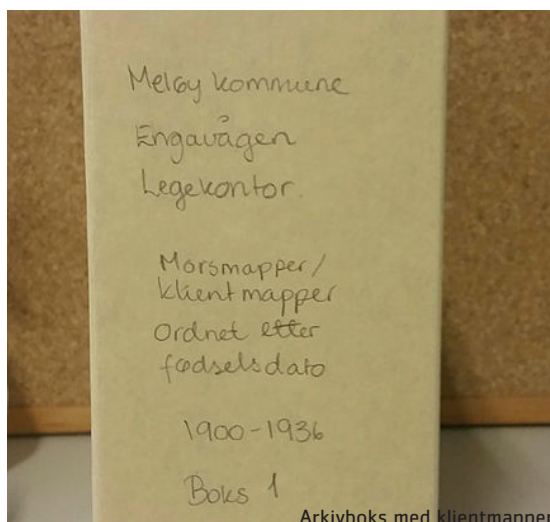 Meløy kommune
Engavågen
Legekontor.
Morsmapper/
klientmapper
Ordnet etter
fødselsdato
1900-1936
Boks 1
Arkivboks med klientmapper